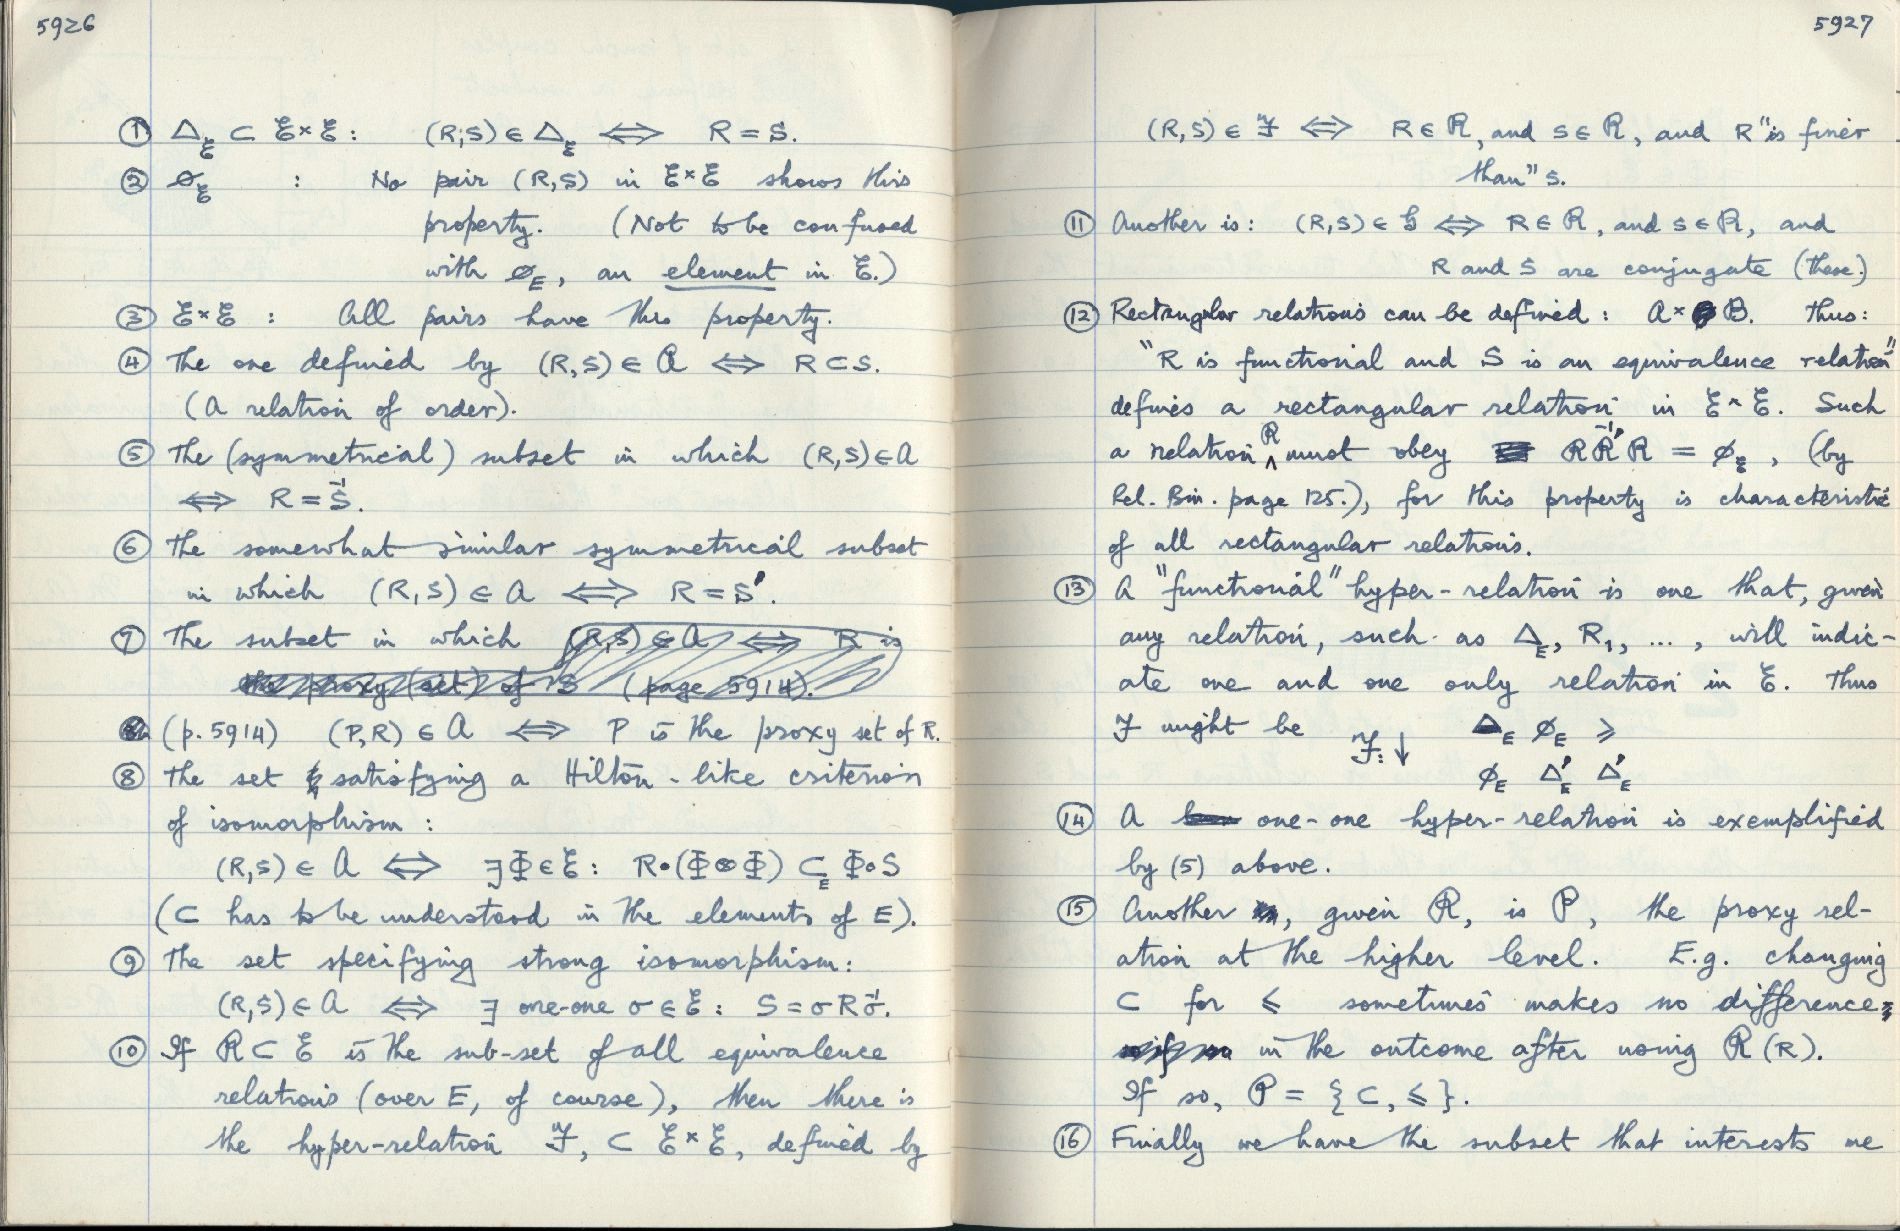 5926
① Δ_ℰ ⊂ ℰ×ℰ : (R,S) ∈ Δ_ℰ ⟺ R = S.
② ∅_ℰ : No pair (R,S) in ℰ×ℰ shows this
property. (Not to be confused
with ∅_E, an element in ℰ.)
③ ℰ×ℰ : All pairs have this property.
④ The one defined by (R,S) ∈ A ⟺ R ⊂ S.
(A relation of order).
⑤ The (symmetrical) subset in which (R,S) ∈ A
⟺ R = S⁻¹.
⑥ The somewhat similar symmetrical subset
in which (R,S) ∈ A ⟺ R = S'.
⑦ The subset in which (R,S) ∈ A ⟺ R is
the proxy (set) of S (page 5914).
(p. 5914) (P,R) ∈ A ⟺ P is the proxy set of R.
⑧ The set satisfying a Hilton-like criterion
of isomorphism :
(R,S) ∈ A ⟺ ∃Φ∈ℰ : R∘(Φ⊗Φ) ⊂_E Φ∘S
(⊂ has to be understood in the elements of E).
⑨ The set specifying strong isomorphism:
(R,S) ∈ A ⟺ ∃ one-one σ ∈ ℰ : S = σRσ⁻¹.
⑩ If ℛ ⊂ ℰ is the sub-set of all equivalence
relations (over E, of course), then there is
the hyper-relation ℱ, ⊂ ℰ×ℰ, defined by
5927
(R,S) ∈ ℱ ⟺ R ∈ ℛ, and S ∈ ℛ, and R "is finer
than" S.
⑪ Another is : (R,S) ∈ 𝒢 ⟺ R ∈ ℛ, and S ∈ ℛ, and
R and S are conjugate (these.)
⑫ Rectangular relations can be defined : A × B. Thus:
"R is functional and S is an equivalence relation"
defines a rectangular relation in ℰ×ℰ. Such
a relation ℛ must obey ℛℛ⁻¹'ℛ = ∅_ℰ, (by
Rel. Bin. page 125.), for this property is characteristic
of all rectangular relations.
⑬ A "functional" hyper-relation is one that, given
any relation, such as Δ_E, R₁, ... , will indic-
ate one and one only relation in ℰ. Thus
ℱ might be ℱ:↓ Δ_E ∅_E ⩾
∅_E Δ'_E Δ'_E
⑭ A one-one hyper-relation is exemplified
by (5) above.
⑮ Another, given ℛ, is 𝒫, the proxy rel-
ation at the higher level. E.g. changing
⊂ for ⩽ sometimes makes no difference
in the outcome after using ℛ(R).
If so, 𝒫 = {⊂, ⩽}.
⑯ Finally we have the subset that interests me